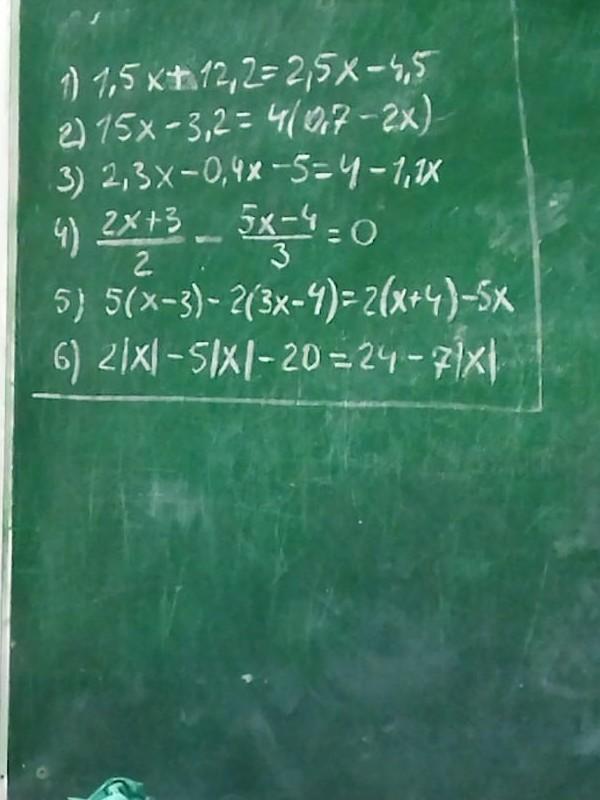 1) 1,5x + 12,2 = 2,5x - 4,5
2) 15x - 3,2 = 4(0,7 - 2x)
3) 2,3x - 0,4x - 5 = 4 - 1,1x
4) (2x+3)/2 - (5x-4)/3 = 0
5) 5(x-3) - 2(3x-4) = 2(x+4) - 5x
6) 2|x| - 5|x| - 20 = 24 - 7|x|